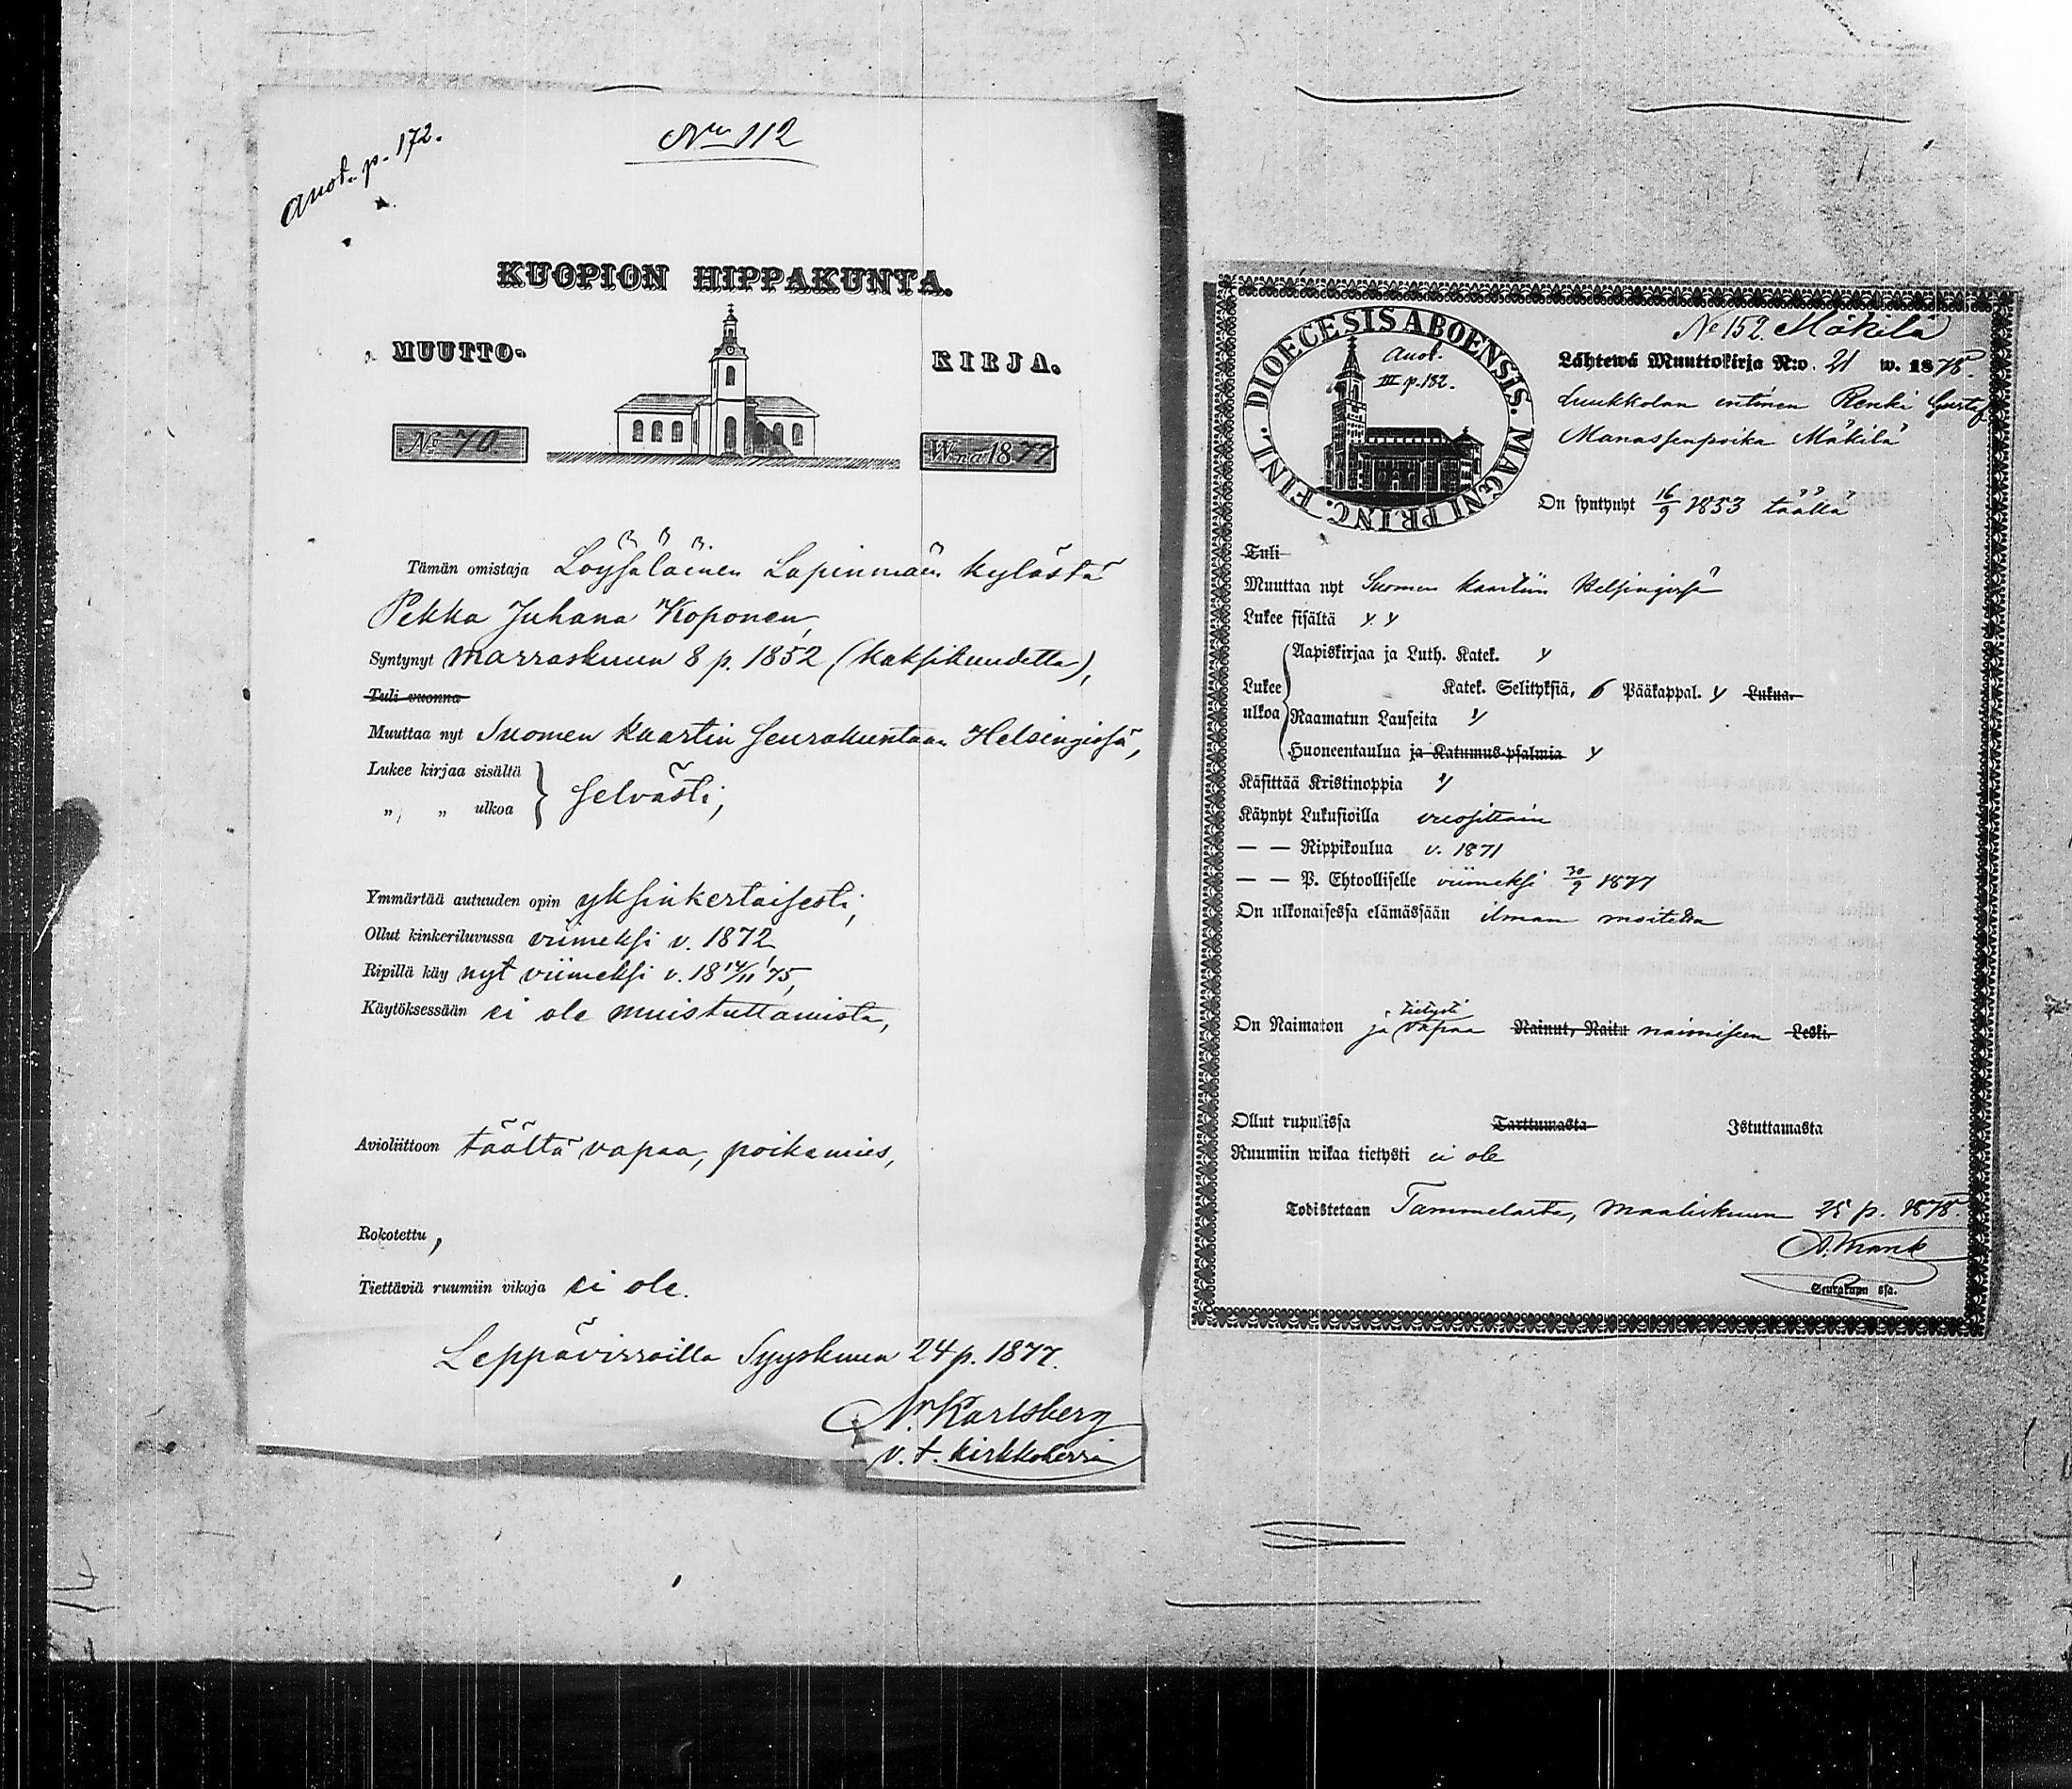 anot. p. 172.
No 112
KUOPION HIPPAKUNTA.
MUUTTO-KIRJA.
No 70.
W:na 1877
Tämän omistaja Löysäläinen Lapinmäen kylästä
Pekka Juhana Koponen,
Syntynyt marraskuun 8 p. 1852 (kaksikuudetta),
Tuli vuonna
Muuttaa nyt Suomen kaartin seurakuntaan Helsingissä,
Lukee kirjaa sisältä
„ „ ulkoa } selvästi;
Ymmärtää autuuden opin yksinkertaisesti;
Ollut kinkeriluvussa viimeksi v. 1872
Ripillä käy nyt viimeksi v. 18 14/11 75,
Käytöksessään ei ole muistuttamista,
Avioliittoon täältä vapaa, poikamies,
Rokotettu,
Tiettäviä ruumiin vikoja ei ole.
Leppävirroilla Syyskuun 24 p. 1877.
Karlsberg
v. t. kirkkoherra
DIOECESIS ABOENSIS. MAGNI PRINC. FINL.
Anot.
III p. 132.
No 152. Mäkilä
Lähtewä Muuttokirja N:o. 21 w. 1878.
Luukkolan entinen Renki Gustaf
Manassenpoika Mäkilä
On syntynyt 16/9 1853 täällä
Tuli
Muuttaa nyt Suomen kaartiin Helsingissä
Lukee sisältä y y
Lukee ulkoa { Aapiskirjaa ja Luth. Katek. y
Katek. Selityksiä, 6 Pääkappal. y Lukua.
Raamatun Lauseita y
Huoneentaulua ja Katumus-psalmia y
Käsittää Kristinoppia y
Käynyt Lukusioilla vuosittain
— — Rippikoulua v. 1871
— — P. Ehtoolliselle viimeksi 30/9 1877
On ulkonaisessa elämässään ilman moitetta
On Naimaton ja tietysti vapaa Nainut, Naitu naimiseen Leski.
Ollut rupulissa Tarttumasta Istuttamasta
Ruumiin wikaa tietysti ei ole
Todistetaan Tammelasta, Maaliskuun 25 p. 1878.
Seurakunn